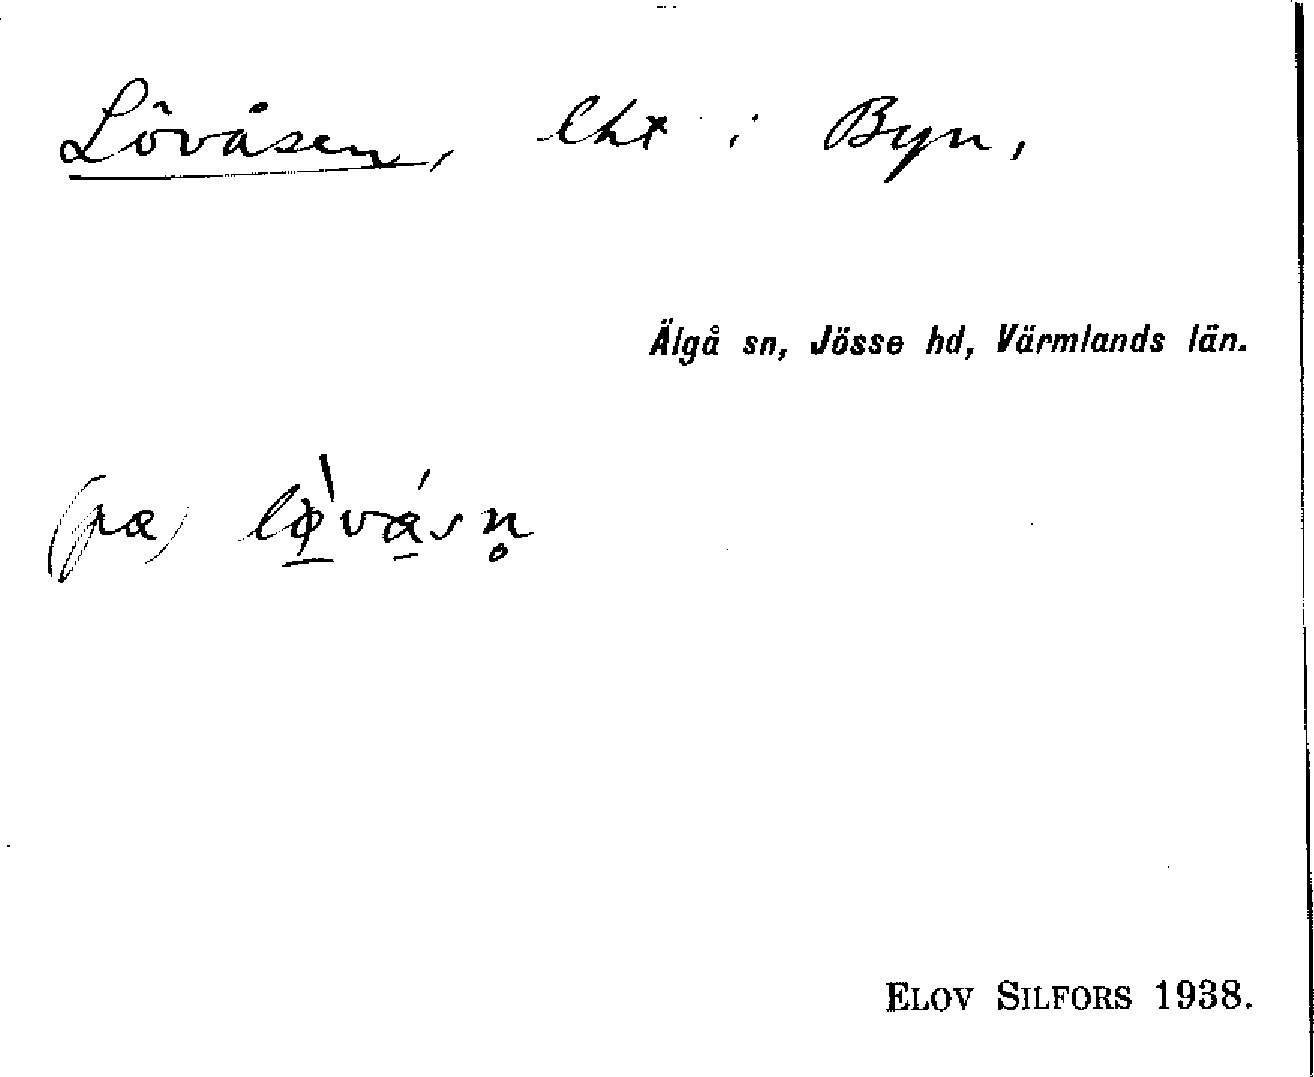 Lövåsen, lht i Byn,
Älgå sn, Jösse hd, Värmlands län.
(pa) lø̠̀vá̠sn̥
ELOV SILFORS 1938.